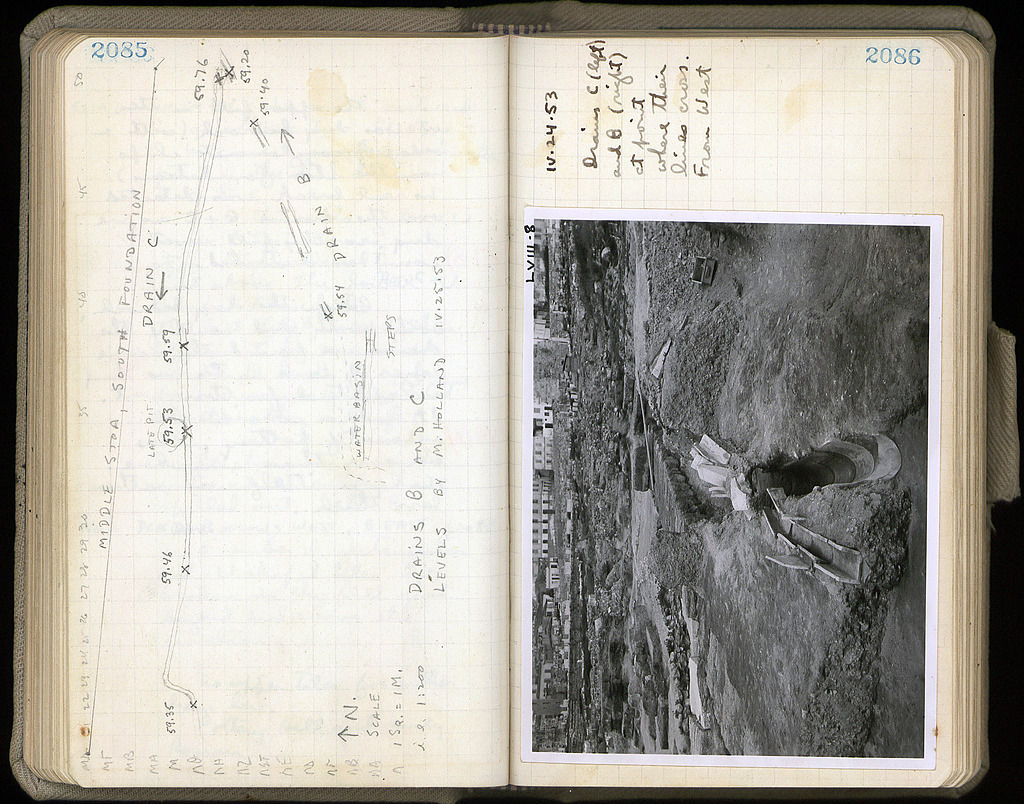 2085
50
45
40
35
30
29
28
27
26
25
24
23
22
MIDDLE STOA, SOUTH FOUNDATION
DRAIN C
LATE PIT
59.76
59.20
59.40
59.59
59.53
59.46
59.35
59.54
DRAIN B
WATER BASIN
STEPS
DRAINS B AND C
LEVELS BY M. HOLLAND IV.25.53
N.
SCALE
1 SQ. = 1 M.
i.e. 1:200
2086
IV.24.53
Drains C (left)
and B (right)
at point
where their
lines cross.
From West
LVIII-8